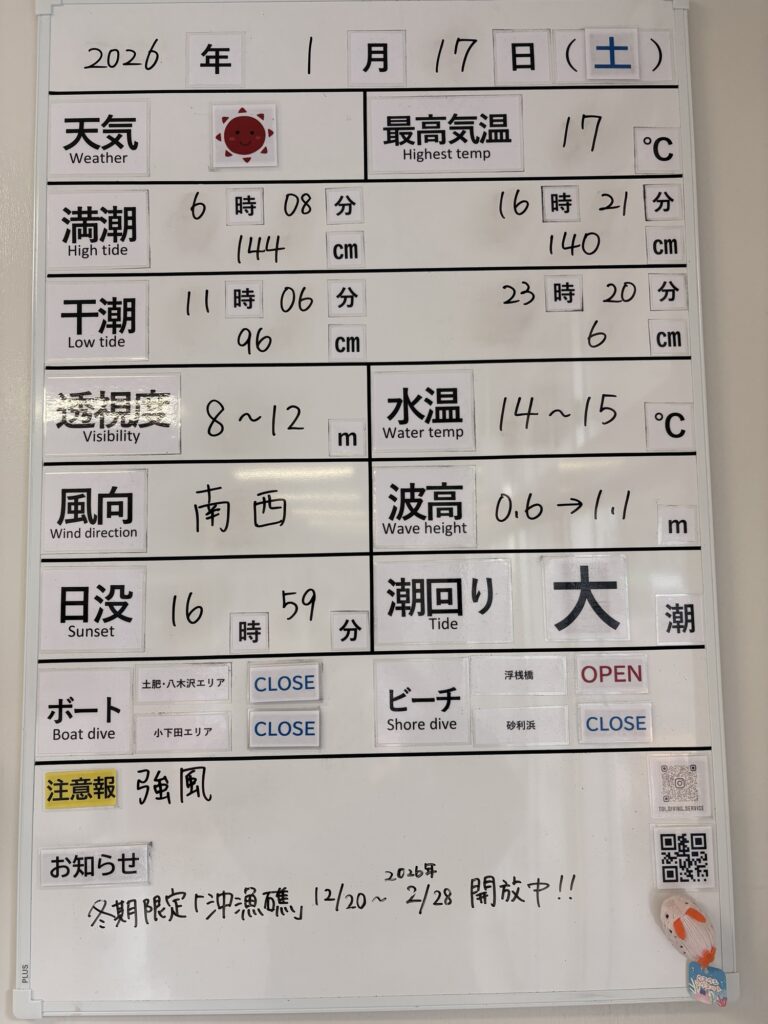 2026 年 1 月 17 日 (土)
天気 Weather 最高気温 Highest temp 17 ℃
満潮 High tide 6 時 08 分 144 cm 16 時 21 分 140 cm
干潮 Low tide 11 時 06 分 96 cm 23 時 20 分 6 cm
透視度 Visibility 8～12 m 水温 Water temp 14～15 ℃
風向 Wind direction 南西 波高 Wave height 0.6→1.1 m
日没 Sunset 16 時 59 分 潮回り Tide 大 潮
ボート Boat dive 土肥・八木沢エリア CLOSE ビーチ Shore dive 浮桟橋 OPEN
小下田エリア CLOSE 砂利浜 CLOSE
注意報 強風
TOI_DIVING_SERVICE
お知らせ
2026年
冬期限定「沖漁礁」12/20～2/28 開放中!!
PLUS